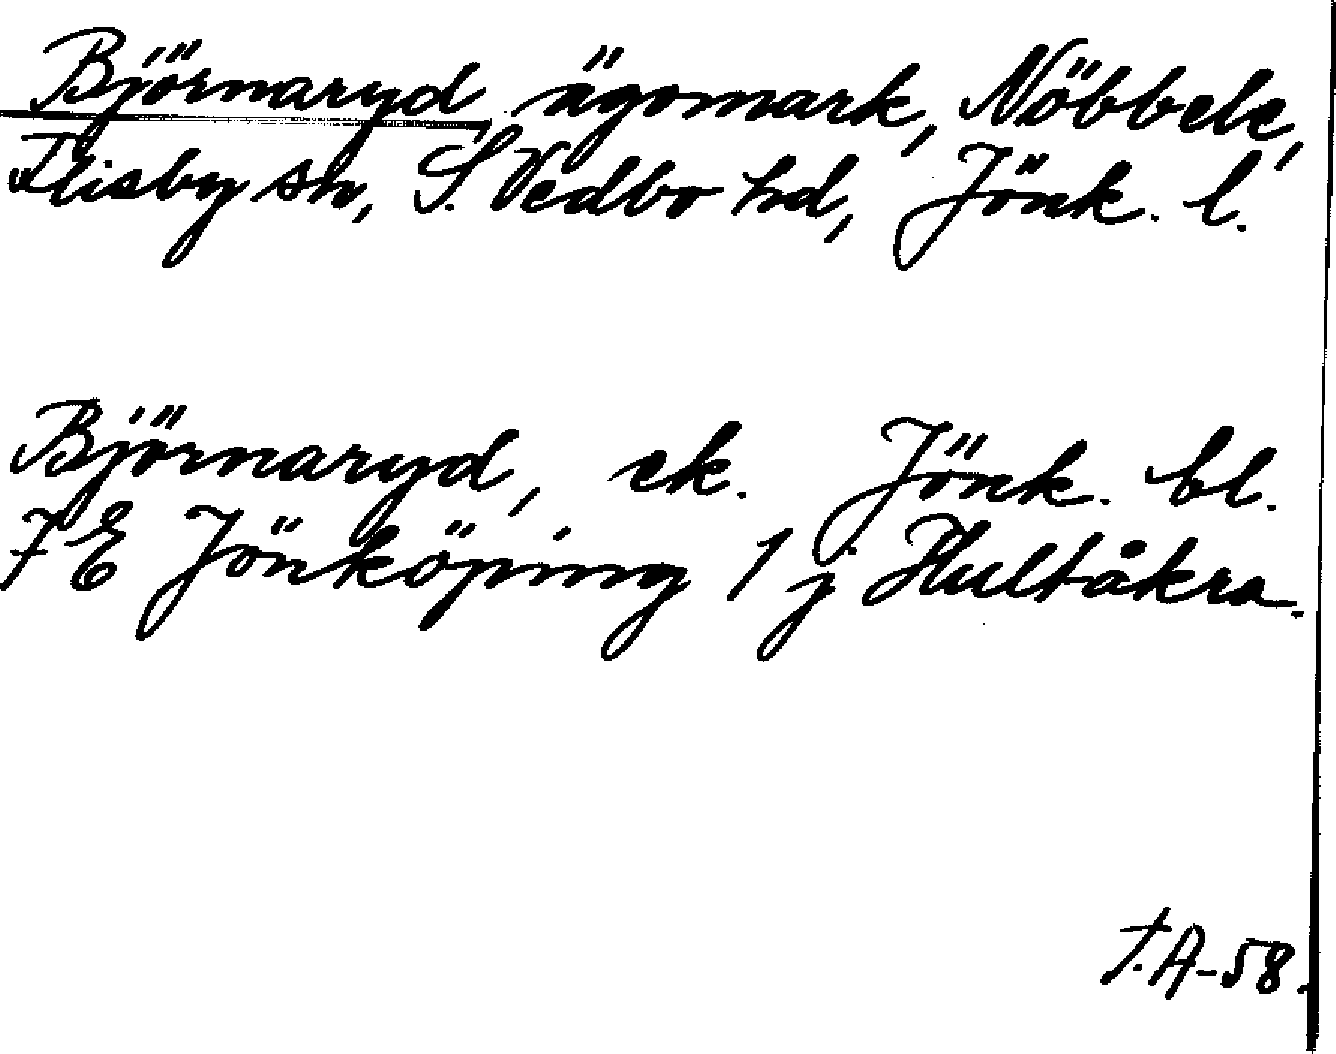 Björnaryd ägomark, Nöbbele,
Flisby sn, S. Vedbo hd, Jönk. l.
Björnaryd, ek. Jönk. bl.
7 E Jönköping 1 j Hultåkra.
F.A-58.